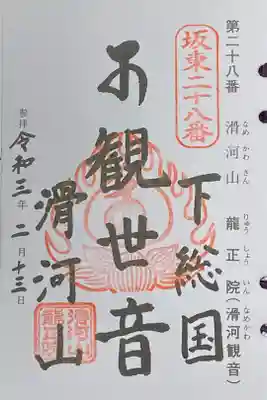 第二十八番 滑河山 龍正院(滑河観音)
なめ かわ さん りゅう しょう いん なめかわ
坂東二十八番
下総国
観世音
滑河山
参拝 令和三年 二月十三日